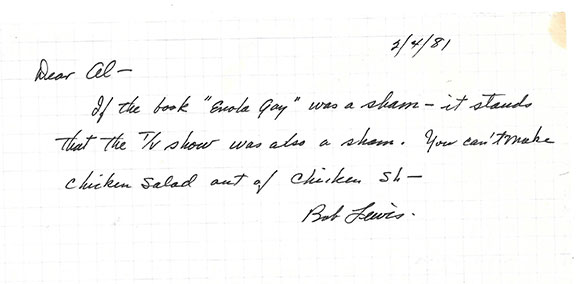 2/4/81
Dear Al—
If the book "Enola Gay" was a sham – it stands
that the T/V show was also a sham. You can't make
chicken salad out of chicken sh—
Bob Lewis.